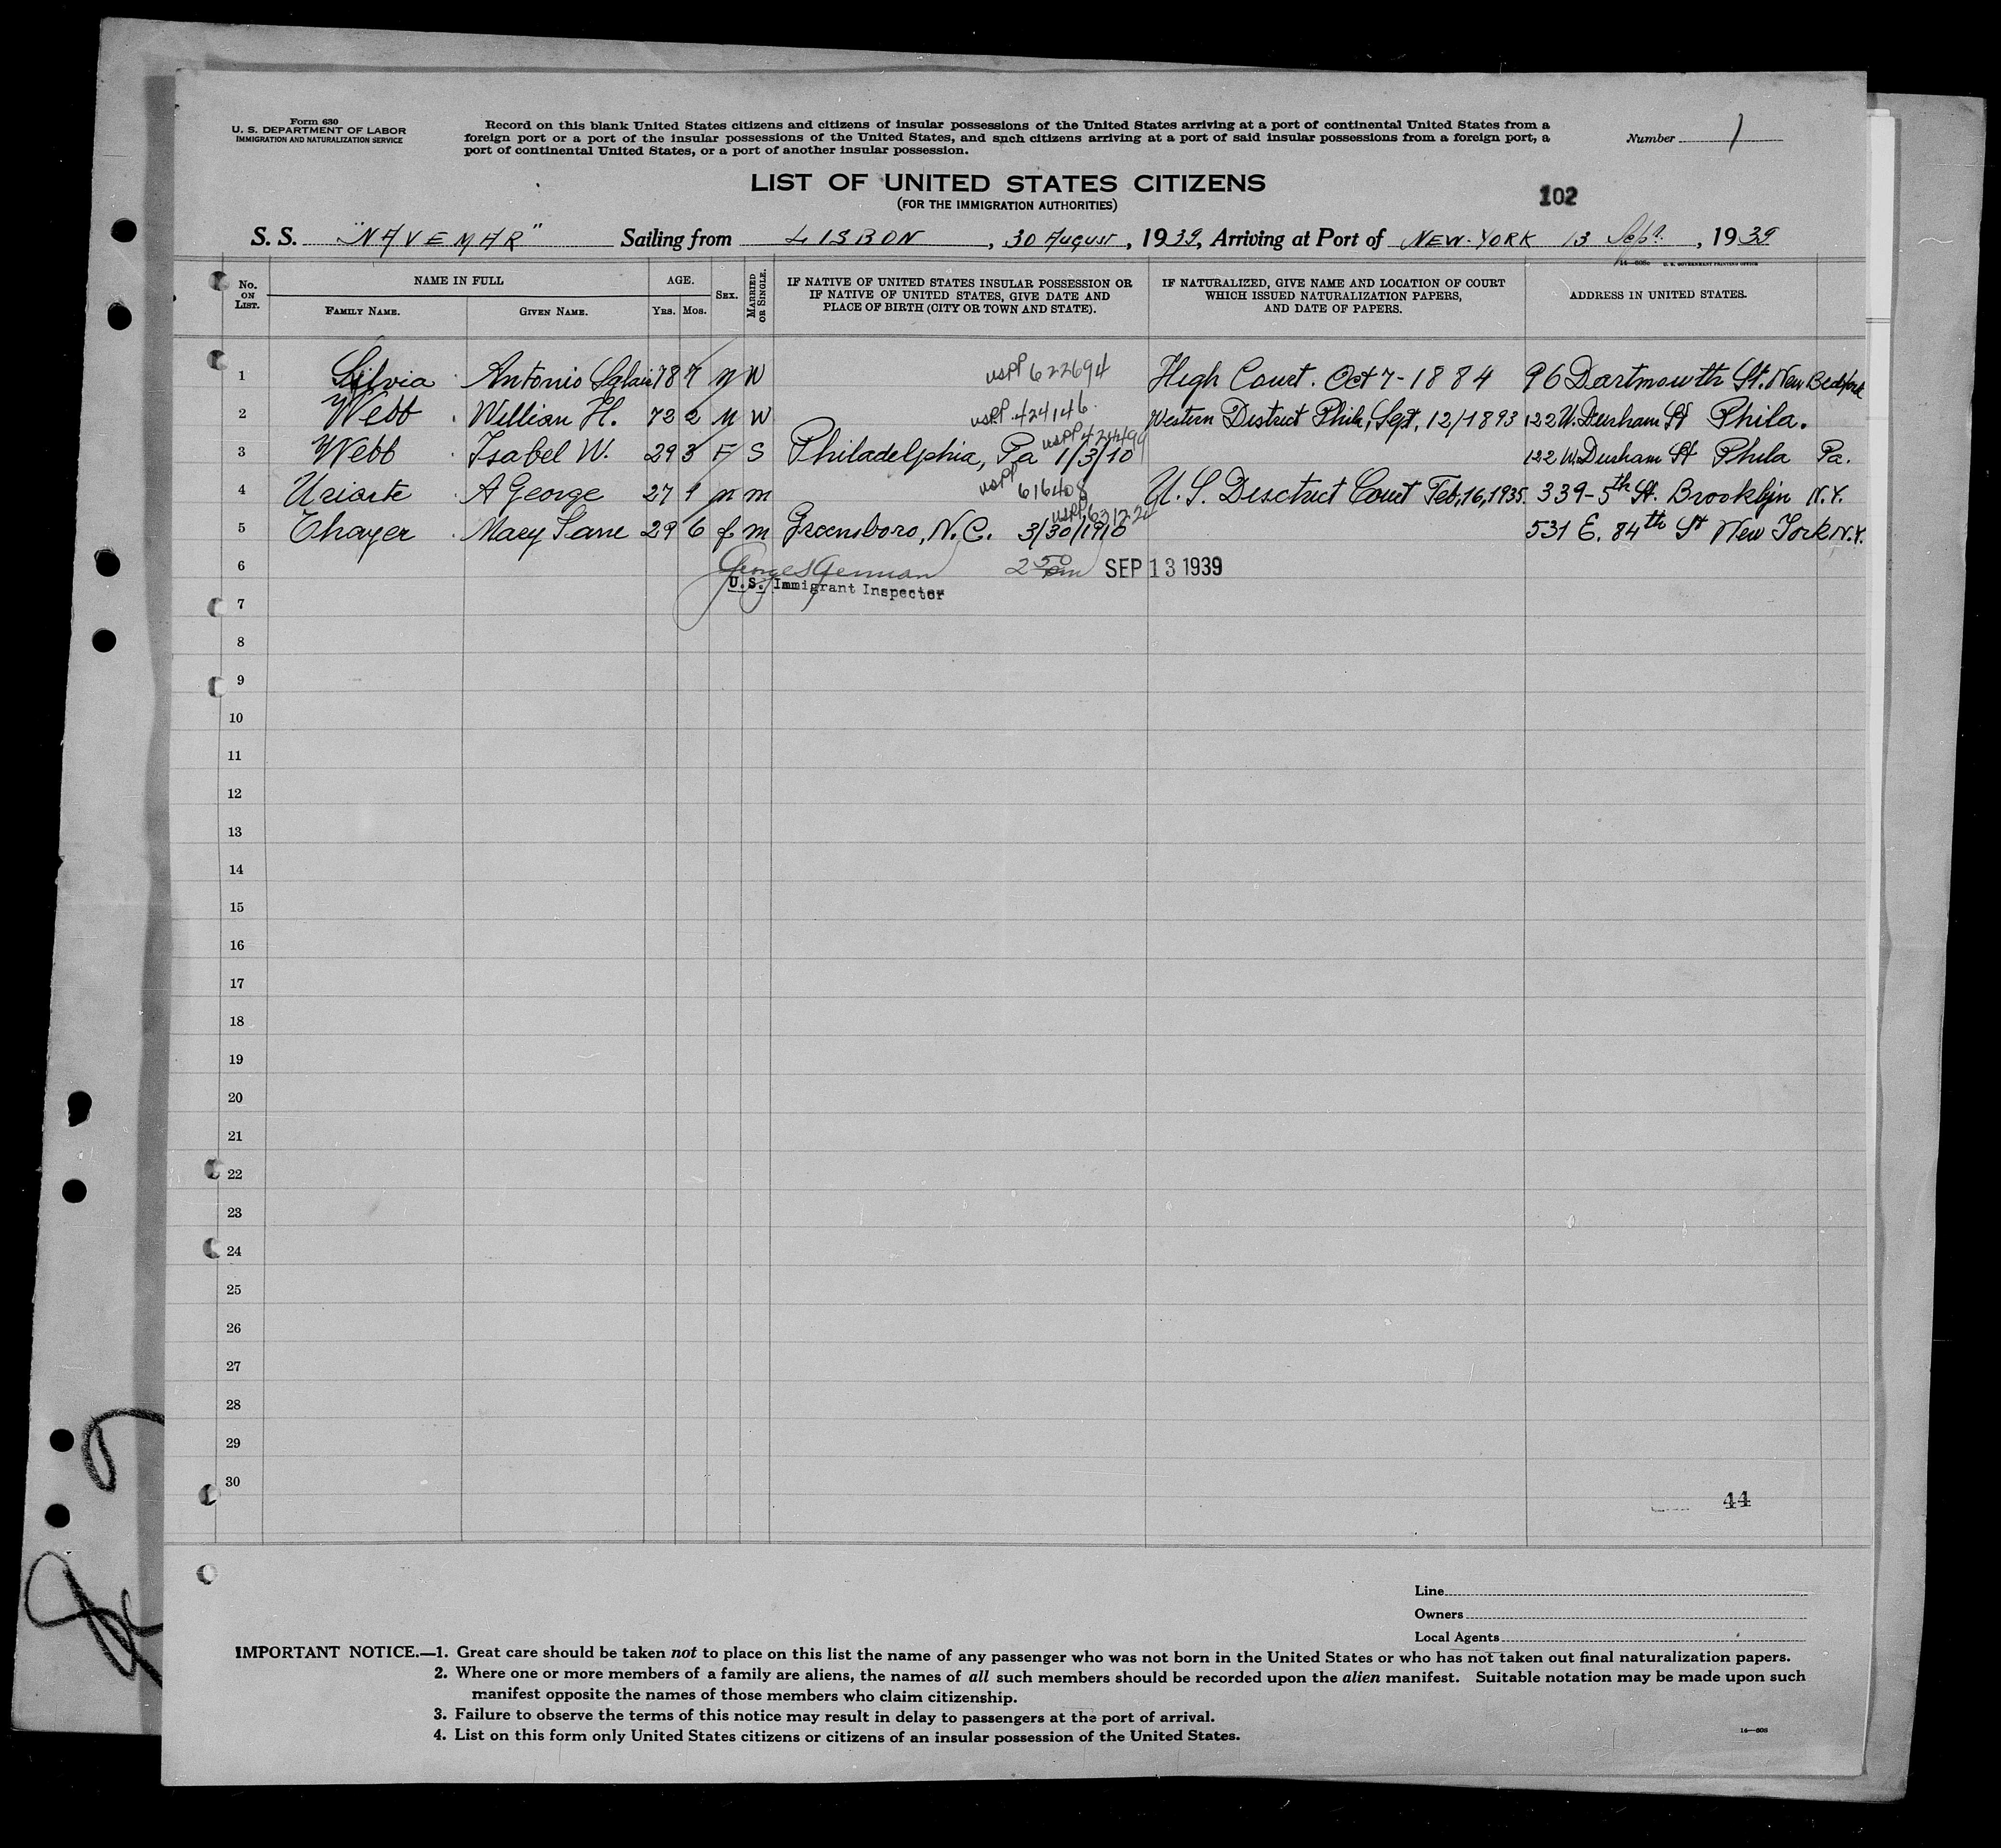 Form 630
U. S. DEPARTMENT OF LABOR
IMMIGRATION AND NATURALIZATION SERVICE
Record on this blank United States citizens and citizens of insular possessions of the United States arriving at a port of continental United States from a
foreign port or a port of the insular possessions of the United States, and such citizens arriving at a port of said insular possessions from a foreign port, a
port of continental United States, or a port of another insular possession.
Number 1
LIST OF UNITED STATES CITIZENS
(FOR THE IMMIGRATION AUTHORITIES)
102
S. S. "NAVEMAR" Sailing from LISBON, 30 August, 1939, Arriving at Port of NEW-YORK 13 Sept., 1939
U. S. GOVERNMENT PRINTING OFFICE
No. ON LIST. NAME IN FULL FAMILY NAME. GIVEN NAME. AGE. YRS. MOS. SEX. MARRIED OR SINGLE. IF NATIVE OF UNITED STATES INSULAR POSSESSION OR IF NATIVE OF UNITED STATES, GIVE DATE AND PLACE OF BIRTH (CITY OR TOWN AND STATE). IF NATURALIZED, GIVE NAME AND LOCATION OF COURT WHICH ISSUED NATURALIZATION PAPERS, AND DATE OF PAPERS. ADDRESS IN UNITED STATES.
1 Silvia Antonio 78 7 M W USPP 622694 High Court. Oct 7-1884 96 Dartmouth St. New Bedford
2 Webb William H. 72 2 M W USPP 424146 Western District Phila, Sept, 12/1893 122 W. Durham St Phila.
3 Webb Isabel W. 29 3 F S Philadelphia, Pa 1/3/10 USPP 122 W. Durham St Phila Pa.
4 Uriarte A George 27 1 m m USPP 616408 U. S. Desctrict Court Feb, 16, 1935. 339-5th St. Brooklyn N.Y.
5 Thayer Mary Jane 29 6 f m Greensboro, N.C. 3/30/1910 USPP 531 E. 84th St New York N.Y.
6 SEP 13 1939
U.S. Immigrant Inspector
7
8
9
10
11
12
13
14
15
16
17
18
19
20
21
22
23
24
25
26
27
28
29
30
44
Line
Owners
Local Agents
IMPORTANT NOTICE.—1. Great care should be taken not to place on this list the name of any passenger who was not born in the United States or who has not taken out final naturalization papers.
2. Where one or more members of a family are aliens, the names of all such members should be recorded upon the alien manifest. Suitable notation may be made upon such
manifest opposite the names of those members who claim citizenship.
3. Failure to observe the terms of this notice may result in delay to passengers at the port of arrival.
4. List on this form only United States citizens or citizens of an insular possession of the United States.
14—608